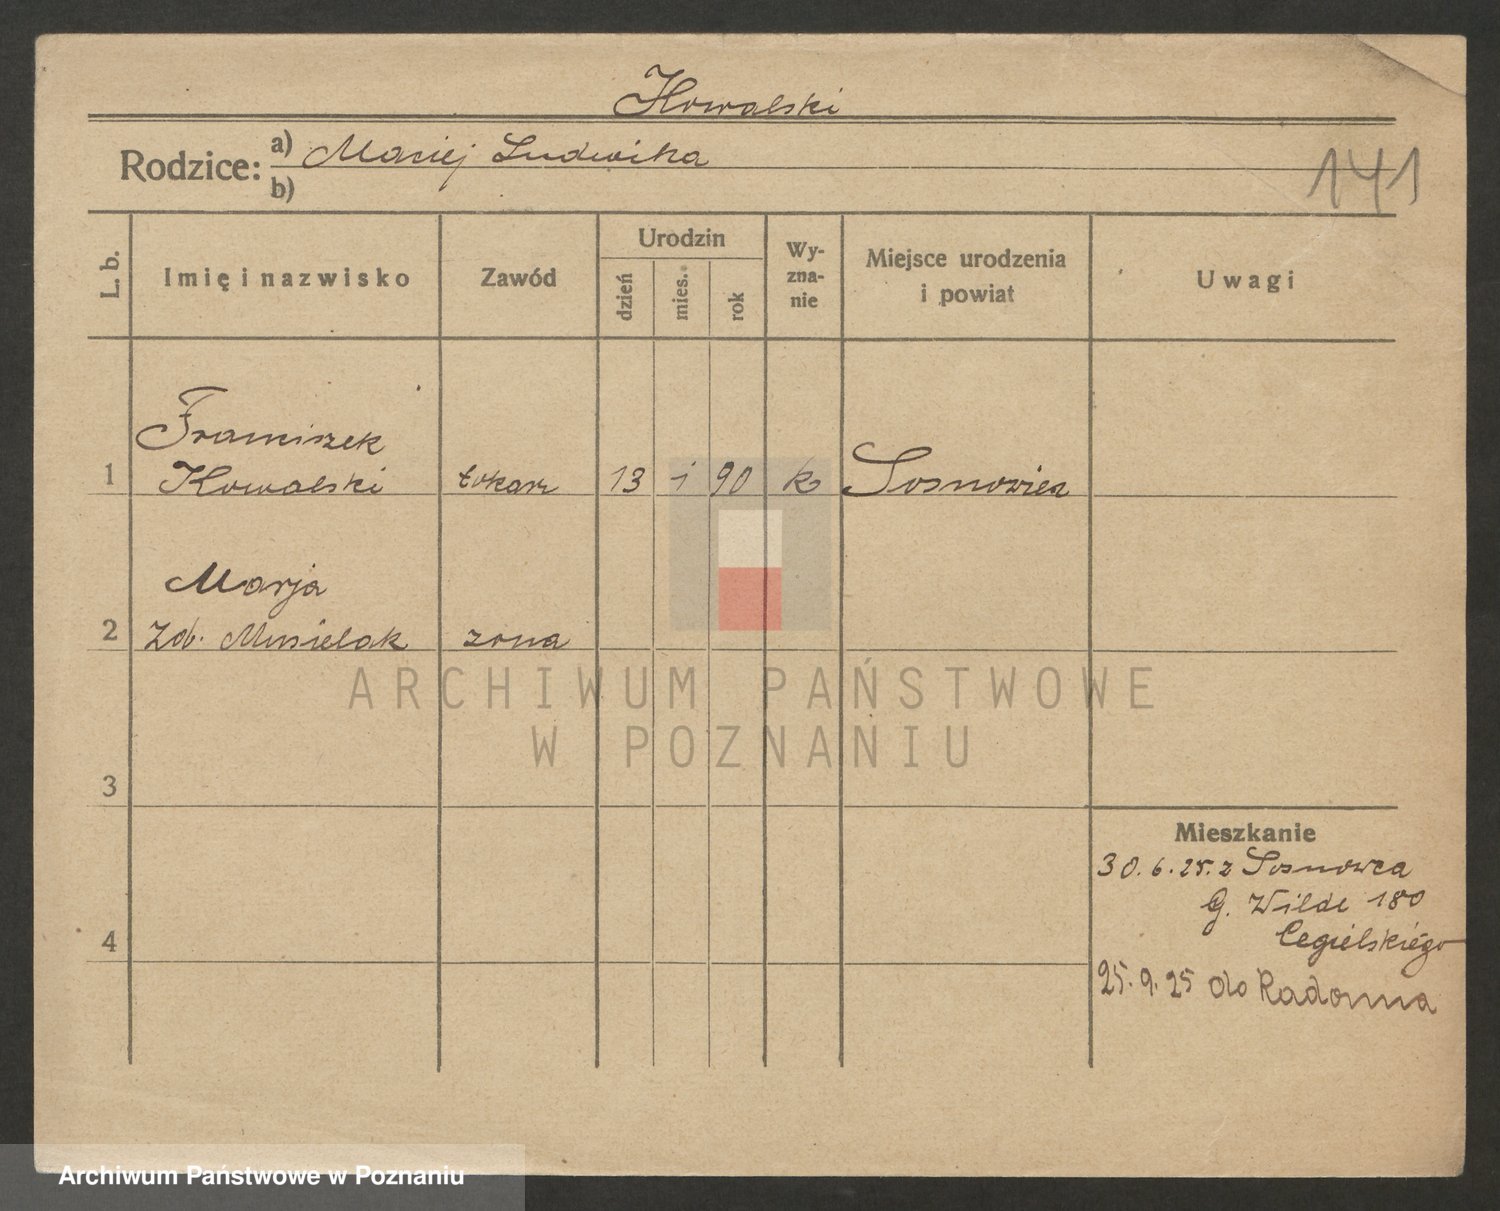 Kowalski
Rodzice: a) Maciej Ludwika
b)
141
L. b.
Imię i nazwisko
Zawód
Urodzin
dzień
mies.
rok
Wy-
zna-
nie
Miejsce urodzenia
i powiat
Uwagi
Franciszek
1 Kowalski tokarz 13 1 90 k Sosnowiec
Marja
2 zd. Musielak zona
ARCHIWUM PAŃSTWOWE
W POZNANIU
3
Mieszkanie
30.6.25. z Sosnowca
G. Wilde 180
Cegielskiego
4
25.9.25 do Radomia
Archiwum Państwowe w Poznaniu